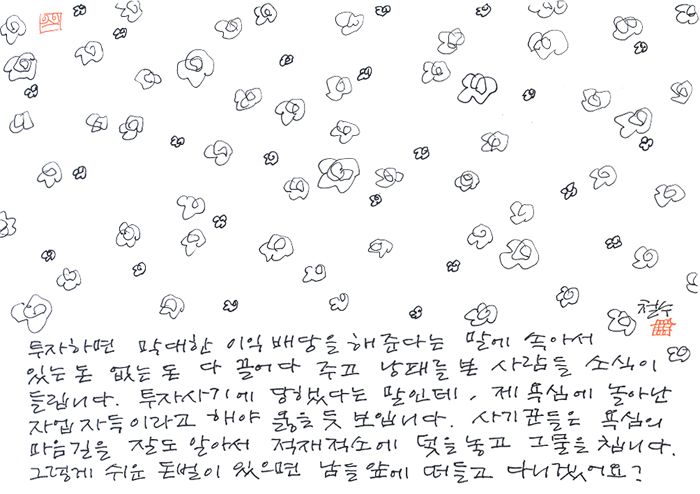 철수
투자하면 막대한 이익배당을 해준다는 말에 속아서
있는 돈 없는 돈 다 끌어다 주고 낭패를 본 사람들 소식이
들립니다. 투자사기에 당했다는 말인데, 제 욕심에 놀아난
자업자득이라고 해야 옳을 듯 보입니다. 사기꾼들은 욕심의
마음길을 잘도 알아서 적재적소에 덫을 놓고 그물을 칩니다.
그렇게 쉬운 돈벌이 있으면 남들 앞에 떠들고 다니겠어요?